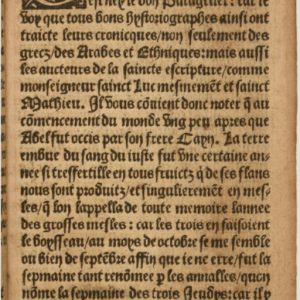 est ney le bon Pantagruel: car ie
voy que tous bons hystoriographes ainsi ont
traicte leurs cronicques/non seulement des
grecz/des Arabes et Ethniques: mais aussi
les aucteurs de la saincte escripture/comme
monseigneur sainct Luc mesmement et sainct
Mathieu. Il vous cōuient donc noter q̄ au
cōmencement du monde vng peu apres que
Abel fut occis par son frere Cayn. La terre
embue du sang du iuste fut vne certaine an-
nee si tresfertille en tous fruictz q̄ de ses flans
nous sont produitz/et singulierement en mes-
les/q̄ lon lappella de toute memoire lannee
des grosses mesles: car les trois en faisoient
le boysseau/au moys de octobre se me semble
ou bien de septēbre affin que ie ne erre/fut la
sepmaine tant renōmee p̱ les annalles/quon
nōme la sepmaine des trois Jeudys: car il y